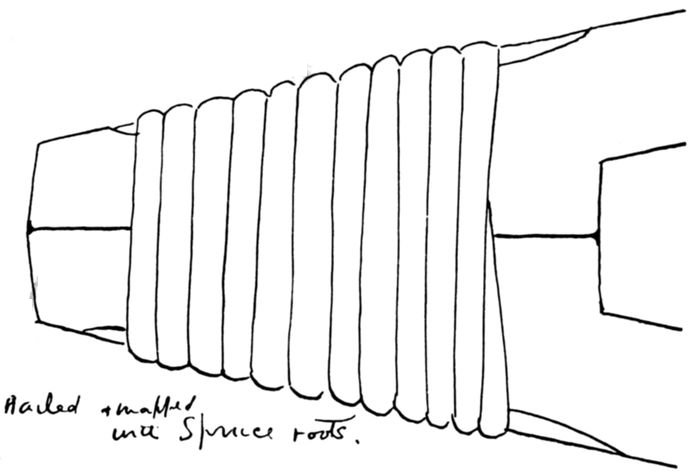 Nailed + wrapped
with Spruce roots.